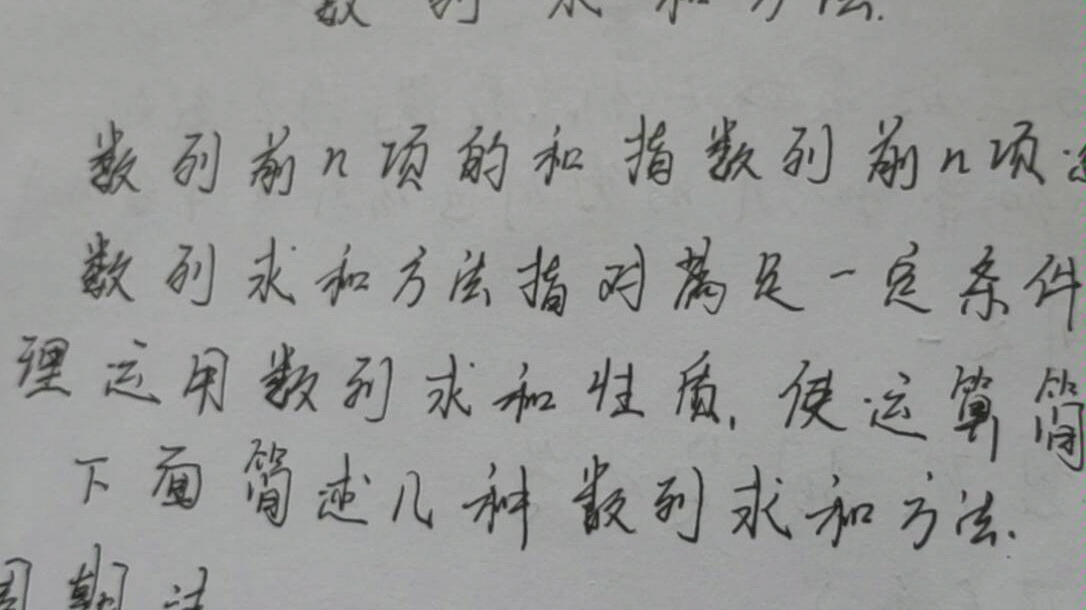 数列求和方法.
数列前n项的和指数列前n项
数列求和方法指对满足一定条件
理运用数列求和性质,使运算简
下面简述几种数列求和方法.
周期法